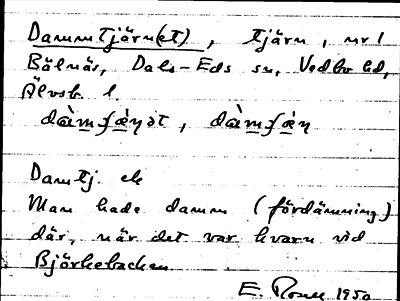 Dammtjärn(et), tjärn, nr 1
Bälnäs, Dals-Eds sn, Vedbo hd,
Älvsb. l.
dàmʃæ̀nət, dàmʃæ̀n
Damtj. ek
Man hade damm (fördämning)
där, när det var kvarn vid
Björkebacken.
E. 1950